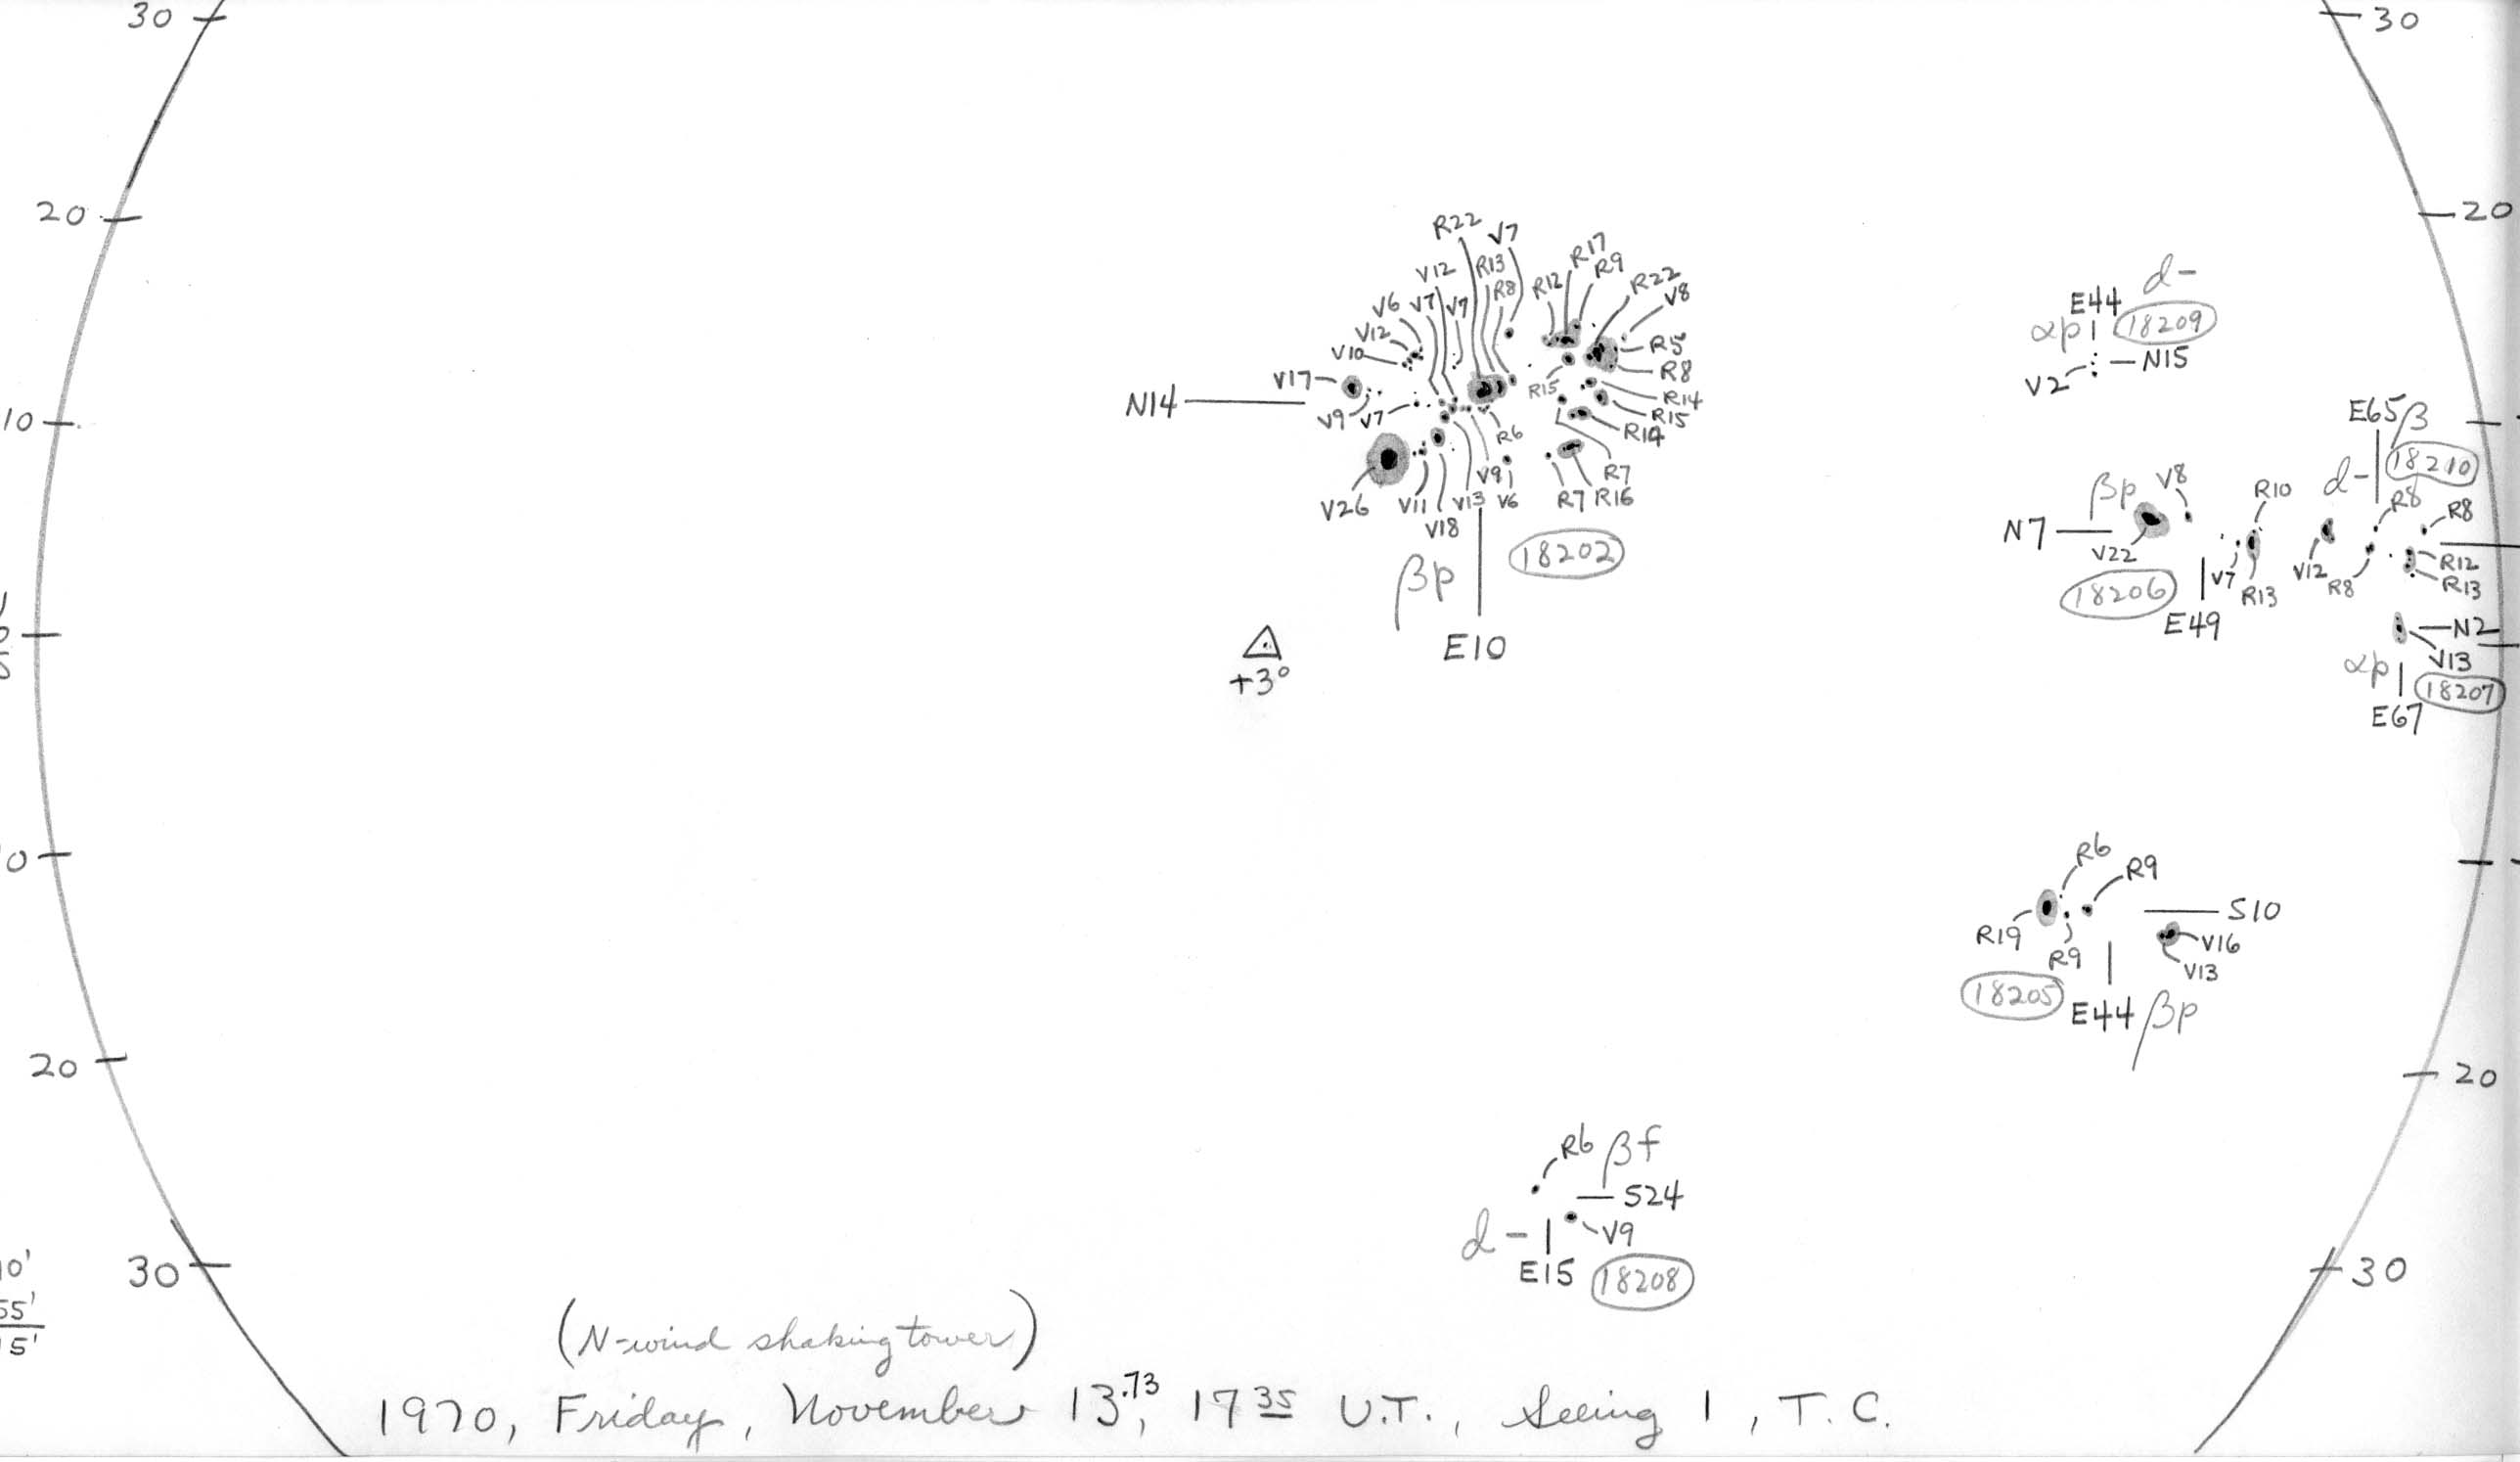 30
30
20
20
10
0
10'
55'
15'
20
30
20
30
R22 V7
V12 R13
V6 V7 V7 R8
V12
V10
V17
N14
V9 V7
V26 V11 V13 V6
V18
V9
R6
R12 R17 R9 R22 V8
R5
R8
R15
R14
R15
R14
R7
R7 R16
18202
βp
E10
+3°
d-
E44
αp 18209
N15
V2
E65 β
d- 18210
R8 R8
βp V8 R10
N7
V22 V7 R13 V12 R8 R12
R13
18206
E49
N2
V13
αp 18207
E67
R6
R9
S10
R19 R9 V16
V13
18205 E44 βp
R6 βf
S24
d- V9
E15 18208
(N-wind shaking tower)
1970, Friday, November 13.73, 17 35 U.T., Seeing 1, T. C.